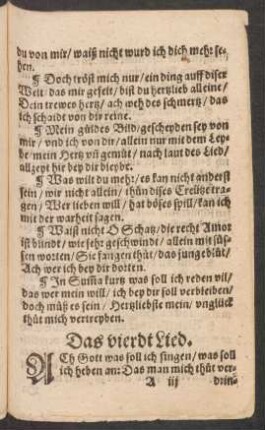 du von mir / waiß nicht wurd ich dich mehr se-
hen.
¶ Doch tröst mich nur / ein ding auff diser
Welt / das mir gefelt / bist du hertzlieb alleine /
Dein trewes hertz / ach weh des schmertz / das
ich schaidt von dir reine.
¶ Mein güldes Bild / gescheyden sey von
mir / vnd ich von dir / allein nur mit dem Ley-
be / mein Hertz vñ gemüt / nach laut des Lied /
allzeyt hir bey dir bleybe.
¶ Was wilt du mehr / es kan nicht anderst
sein / wir nicht allein / thün dises Creütz tra-
gen / Wer lieben will / hat böses spill / kan ich
mit der warheit sagen.
¶ Waist nicht O Schatz / die recht Amor
ist blindt / wie sehr geschwindt / allein mit süs-
sen worten / Sie fangen thüt / das jung blüt /
Ach wer ich bey dir dorten.
¶ In Suma kurtz was soll ich reden vil /
das wer mein will / ich bey dir soll verbleiben /
doch müß es sein / Hertzliebste mein / vnglück
thüt mich vertreyben.
Das vierdt Lied.
ACh Gott was soll ich singen / was soll
ich heben an: Das man mich thüt ver-
A iij drin-